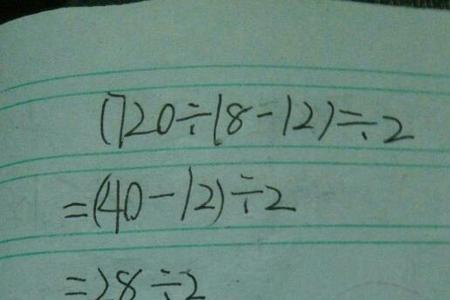 (720÷18-12)÷2
=(40-12)÷2
=28÷2